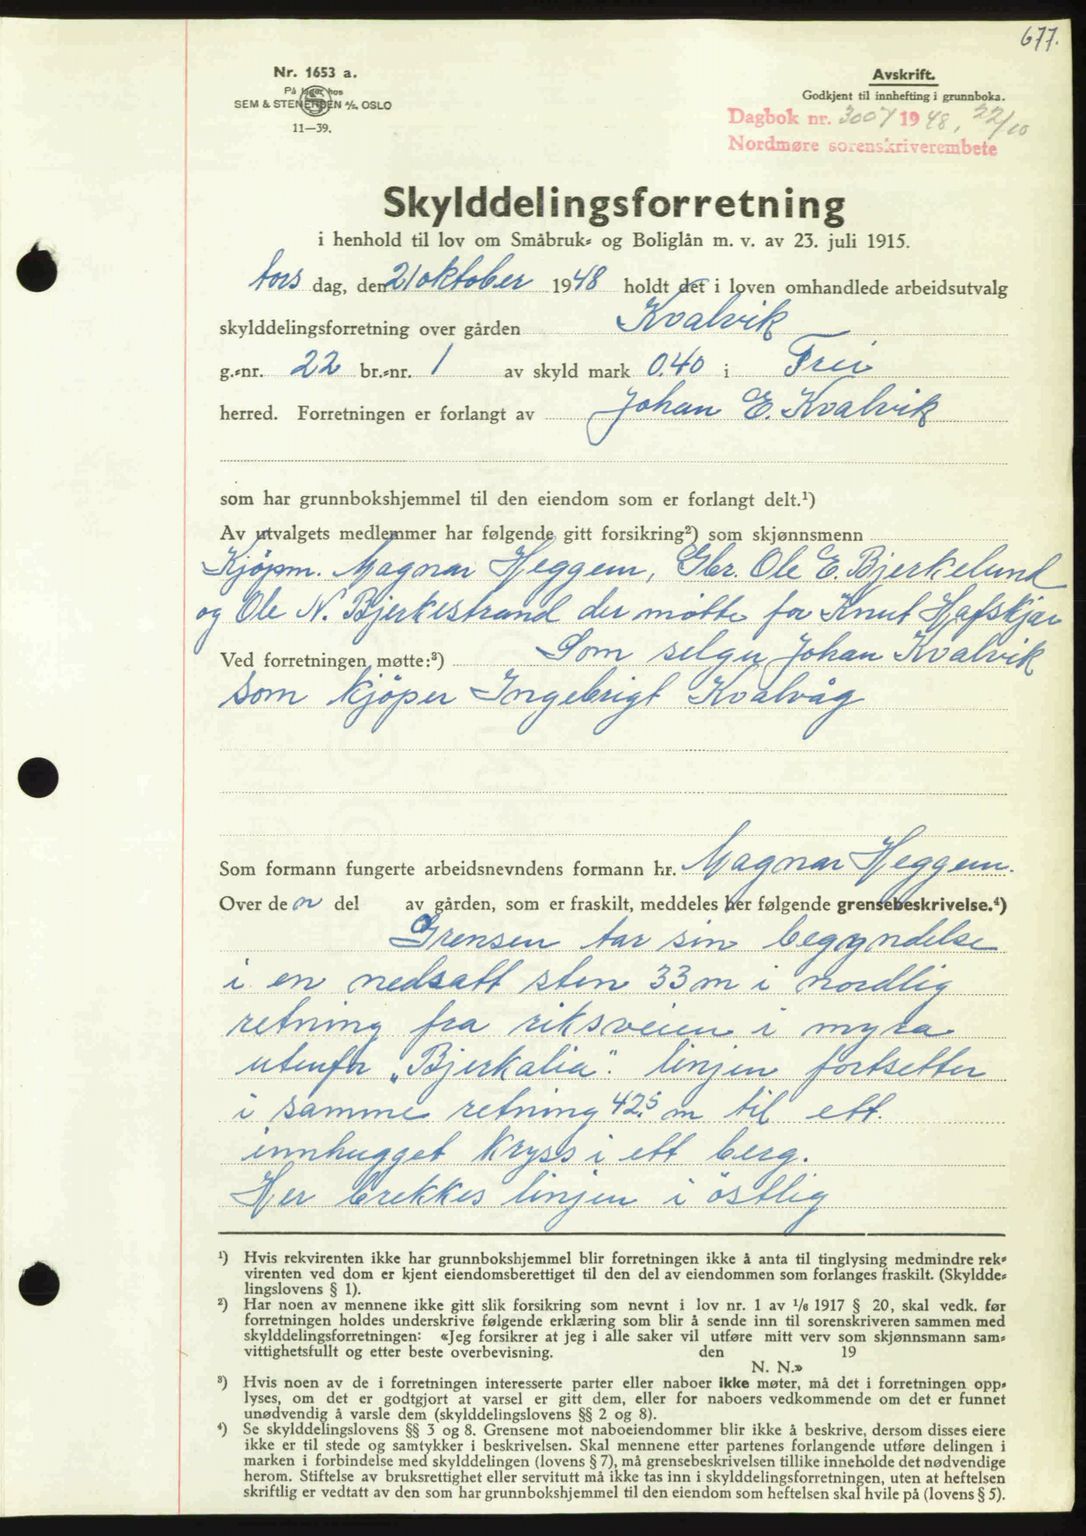 677.
Nr. 1653 a.
På lager hos
SEM & STENERSEN A/S, OSLO
11—39.
Avskrift.
Godkjent til innhefting i grunnboka.
Dagbok nr. 3007 1948, 22/10
Nordmøre sorenskriverembete
Skylddelingsforretning
i henhold til lov om Småbruk- og Boliglån m. v. av 23. juli 1915.
tors dag, den 21 oktober 1948 holdt det i loven omhandlede arbeidsutvalg
skylddelingsforretning over gården Kvalvik
g.-nr. 22 br.-nr. 1 av skyld mark 0.40 i Frei
herred. Forretningen er forlangt av Johan E. Kvalvik
som har grunnbokshjemmel til den eiendom som er forlangt delt.¹)
Av utvalgets medlemmer har følgende gitt forsikring²) som skjønnsmenn
Kjøpm. Magnar Heggem, Gbr. Ole E. Bjerkelund
og Ole N. Bjerkestrand der møtte for Knut Hafskjær
Ved forretningen møtte:³) Som selger Johan Kvalvik
som kjöper Ingebrigt Kvalvåg
Som formann fungerte arbeidsnevndens formann hr. Magnar Heggem.
Over den del av gården, som er fraskilt, meddeles her følgende grensebeskrivelse.⁴)
Grensen tar sin begyndelse
i en nedsatt sten 33 m i nordlig
retning fra riksveien i myra
utenfor „Bjerkalia". linjen fortsetter
i samme retning 42.5 m til ett
innhugget kryss i ett berg.
Her brekkes linjen i östlig
¹) Hvis rekvirenten ikke har grunnbokshjemmel blir forretningen ikke å anta til tinglysing medmindre rek-
virenten ved dom er kjent eiendomsberettiget til den del av eiendommen som forlanges fraskilt. (Skyldde-
lingslovens § 1).
²) Har noen av mennene ikke gitt slik forsikring som nevnt i lov nr. 1 av 1/6 1917 § 20, skal vedk. før
forretningen holdes underskrive følgende erklæring som blir å sende inn til sorenskriveren sammen med
skylddelingsforretningen: «Jeg forsikrer at jeg i alle saker vil utføre mitt verv som skjønnsmann sam-
vittighetsfullt og etter beste overbevisning. den 19
N. N.»
³) Hvis noen av de i forretningen interesserte parter eller naboer ikke møter, må det i forretningen opp-
lyses, om det er godtgjort at varsel er gitt dem, eller for naboers vedkommende om det er funnet
unødvendig å varsle dem (skylddelingslovens §§ 2 og 8).
⁴) Se skylddelingslovens §§ 3 og 8. Grensene mot naboeiendommer blir ikke å beskrive, dersom disses eiere
ikke er til stede og samtykker i beskrivelsen. Skal mennene etter partenes forlangende utføre delingen i
marken i forbindelse med skylddelingen (lovens § 7), må grensebeskrivelsen tillike inneholde det nødvendige
herom. Stiftelse av bruksrettighet eller servitutt må ikke tas inn i skylddelingsforretningen, uten at heftelsen
skriftlig er vedtatt av den som har grunnbokshjemmel til den eiendom som heftelsen skal hvile på (lovens § 5).